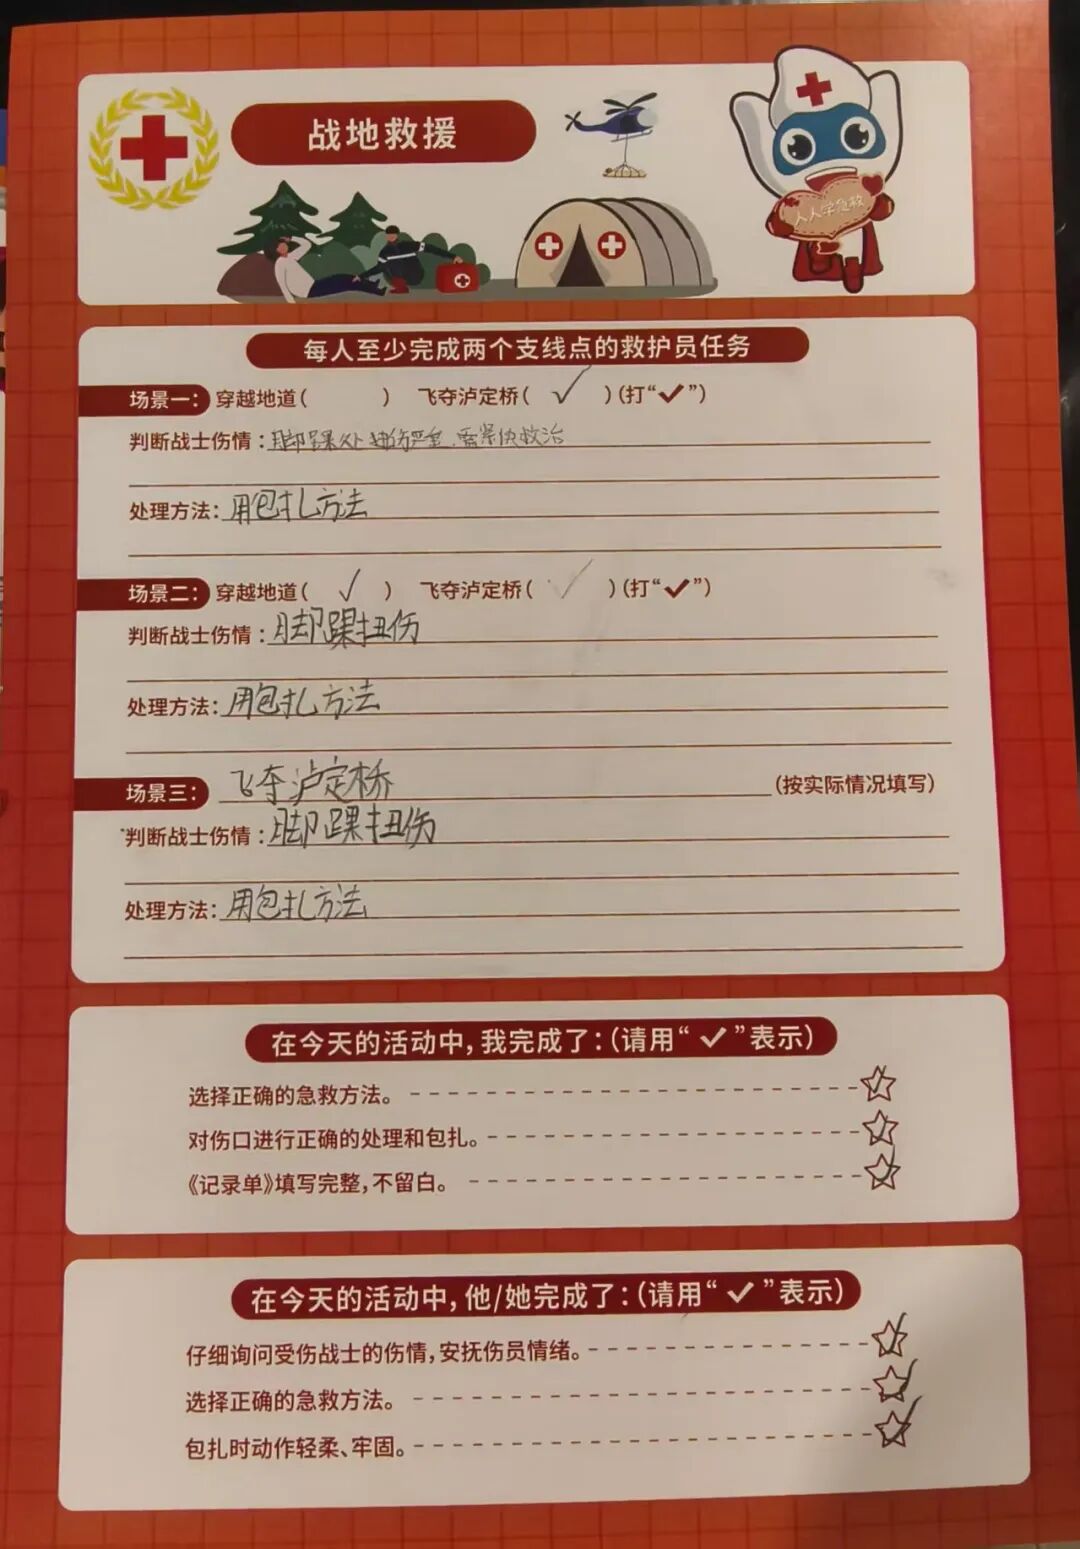 战地救援
人人学急救
每人至少完成两个支线点的救护员任务
场景一：穿越地道（ ） 飞夺泸定桥（ ✓ ）（打“✔”）
判断战士伤情：脚踝处扭伤严重，需紧快救治
处理方法：用包扎方法
场景二：穿越地道（ ✓ ） 飞夺泸定桥（ ✓ ）（打“✔”）
判断战士伤情：脚踝扭伤
处理方法：用包扎方法
场景三：飞夺泸定桥（按实际情况填写）
判断战士伤情：脚踝扭伤
处理方法：用包扎方法
在今天的活动中，我完成了：（请用“✓”表示）
选择正确的急救方法。
对伤口进行正确的处理和包扎。
《记录单》填写完整，不留白。
在今天的活动中，他/她完成了：（请用“✓”表示）
仔细询问受伤战士的伤情，安抚伤员情绪。
选择正确的急救方法。
包扎时动作轻柔、牢固。